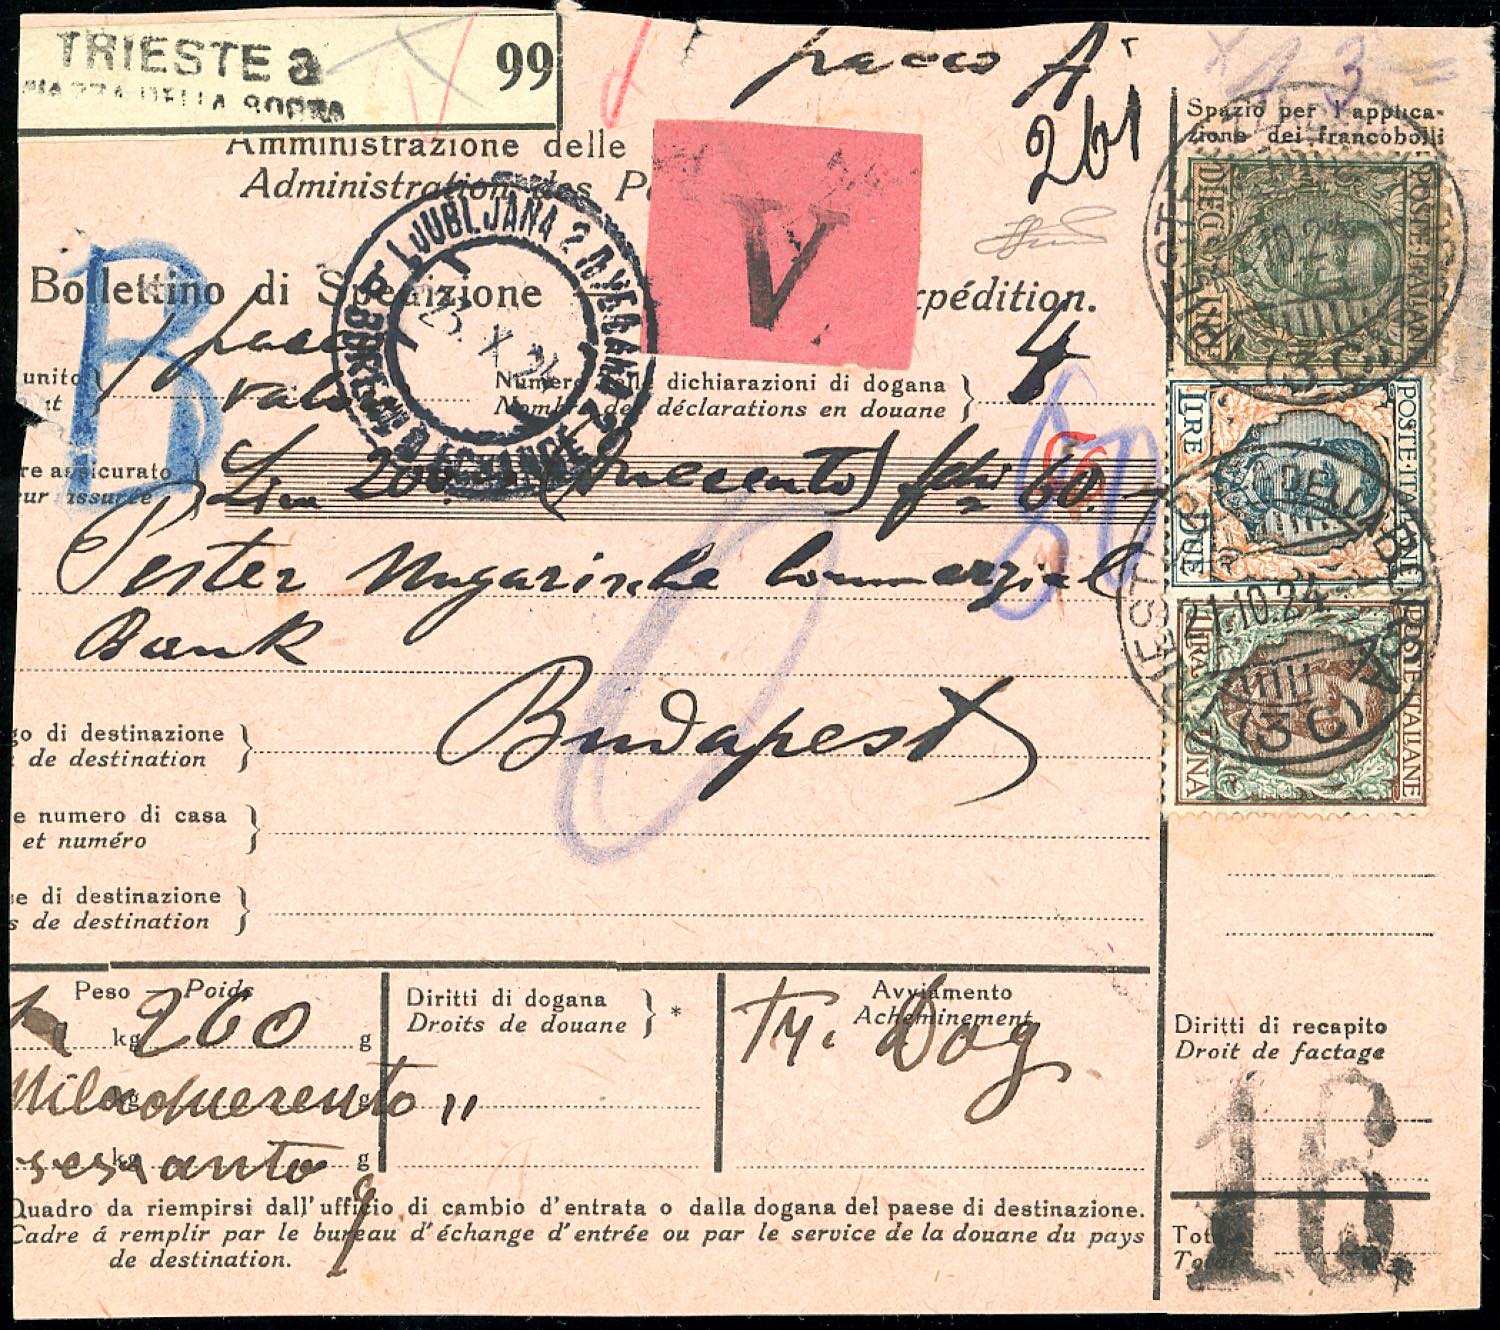 TRIESTE 3
99
pacco A
261
Spazio per l'applica-
zione dei francobolli
Amministrazione delle
Administration des P
V
LJUBLJANA 2
POSTE·ITALIANE
DIECI LIRE
B
Bollettino di Spedizione
xpédition.
1 pacco
valore
4
unito }
Numero delle dichiarazioni di dogana }
Nombre des déclarations en douane
POSTE·ITALIANE
LIRE DUE
re assicurato }
eur assurée
Lire 200.- (Duecento) 60.-
PIAZZA DELLA BORSA
Pester Ungarische Commerzial
Bank
TRIESTE
21.10.24
POSTE ITALIANE
LIRA UNA
(3C)
Budapest
go di destinazione }
de destination
e numero di casa }
et numéro
se di destinazione }
s de destination
Peso — Poids
1 kg 260 g
Diritti di dogana } *
Droits de douane
Avviamento
Acheminement
Tr. Dog
Diritti di recapito
Droit de factage
Milleduecento "
kg g
sessanta
kg g
16
Quadro da riempirsi dall'ufficio di cambio d'entrata o dalla dogana del paese di destinazione.
Cadre á remplir par le bureau d'échange d'entrée ou par le service de la douane du pays
de destination.
Tot
Total